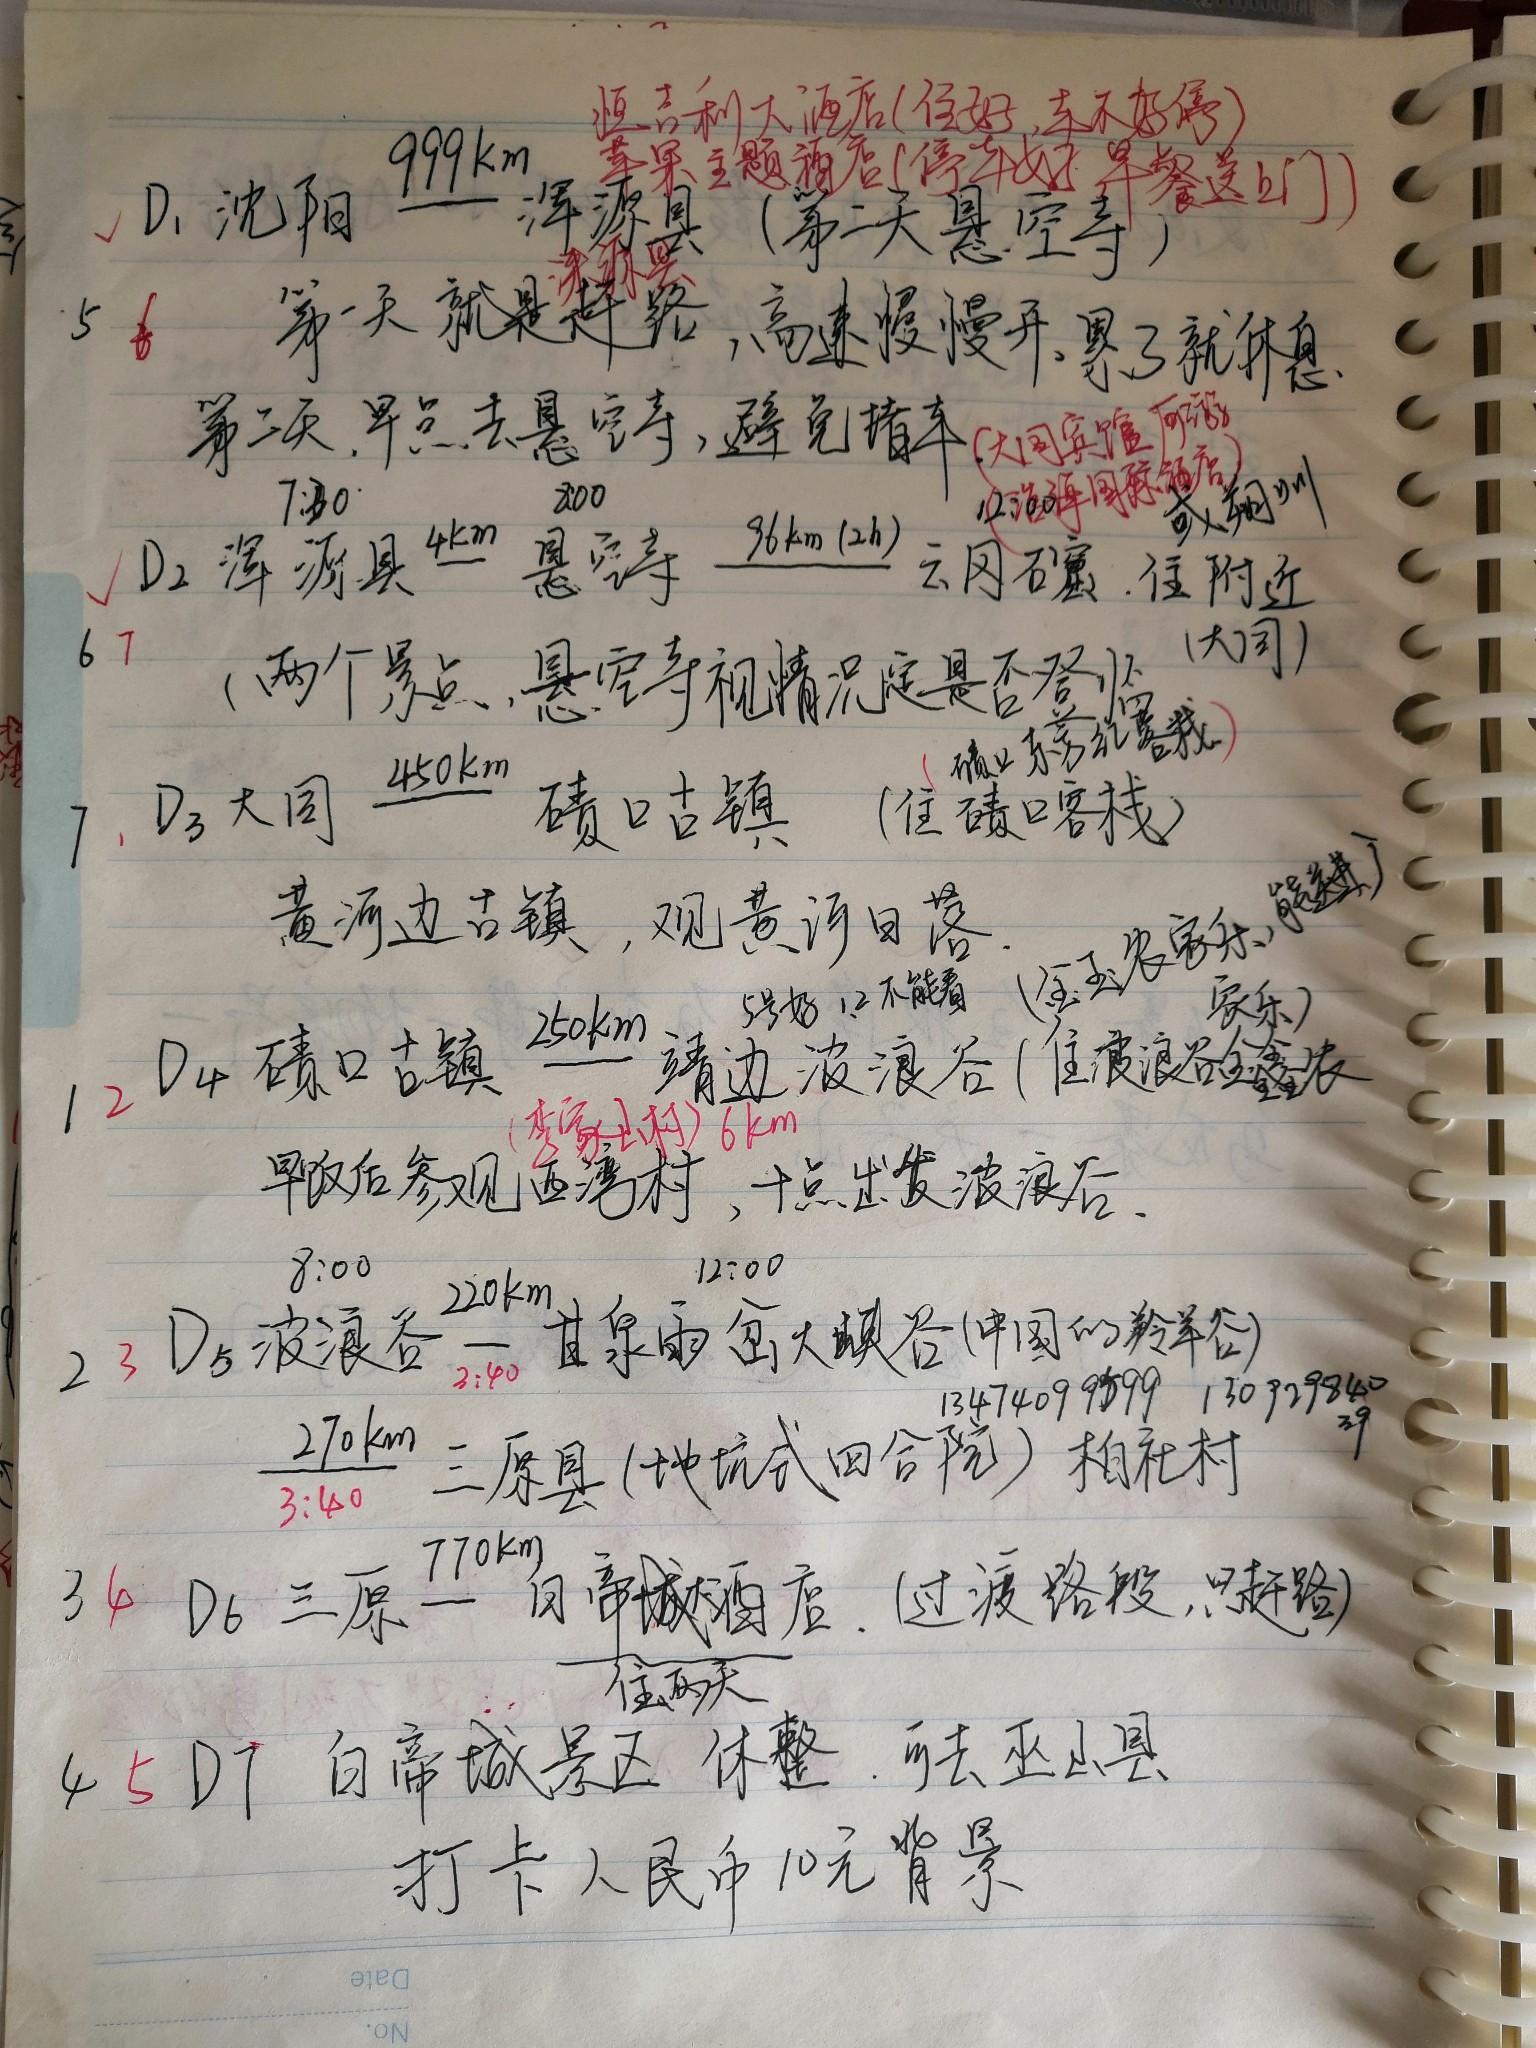 恒吉利大酒店(住好,车不好停)
苹果主题酒店(停车好 早餐送上门)
D1 沈阳 999km 浑源县 (第二天悬空寺)
5 6 第一天就是赶路,高速慢慢开,累了就休息.
第二天,早点去悬空寺,避免堵车.
(大同宾馆
国际酒店)
7:30 8:00 12:00 或朔州
D2 浑源县 4km 悬空寺 96km(2h) 云冈石窟.住附近
(大同)
6 7 (两个景点,悬空寺视情况定是否登临
(碛口 客栈)
7 D3 大同 450km 碛口古镇 (住碛口客栈)
黄河边古镇,观黄河日落.
5号好 1.2不能看 (金玉农家乐,
家乐)
1 2 D4 碛口古镇 250km 靖边波浪谷(住波浪谷金鑫农
(李家山村)6km
早饭后参观西湾村,十点出发波浪谷.
8:00 12:00
2 3 D5 波浪谷 220km 甘泉雨岔大峡谷(中国的羚羊谷)
3:40
13474099599 13092984039
270km 三原县(地坑式四合院) 柏社村
3:40
3 4 D6 三原 770km 白帝城酒店.(过渡路段,只赶路)
住两天
4 5 D7 白帝城景区 休整.可去巫山县
打卡人民币10元背景
Date
No.